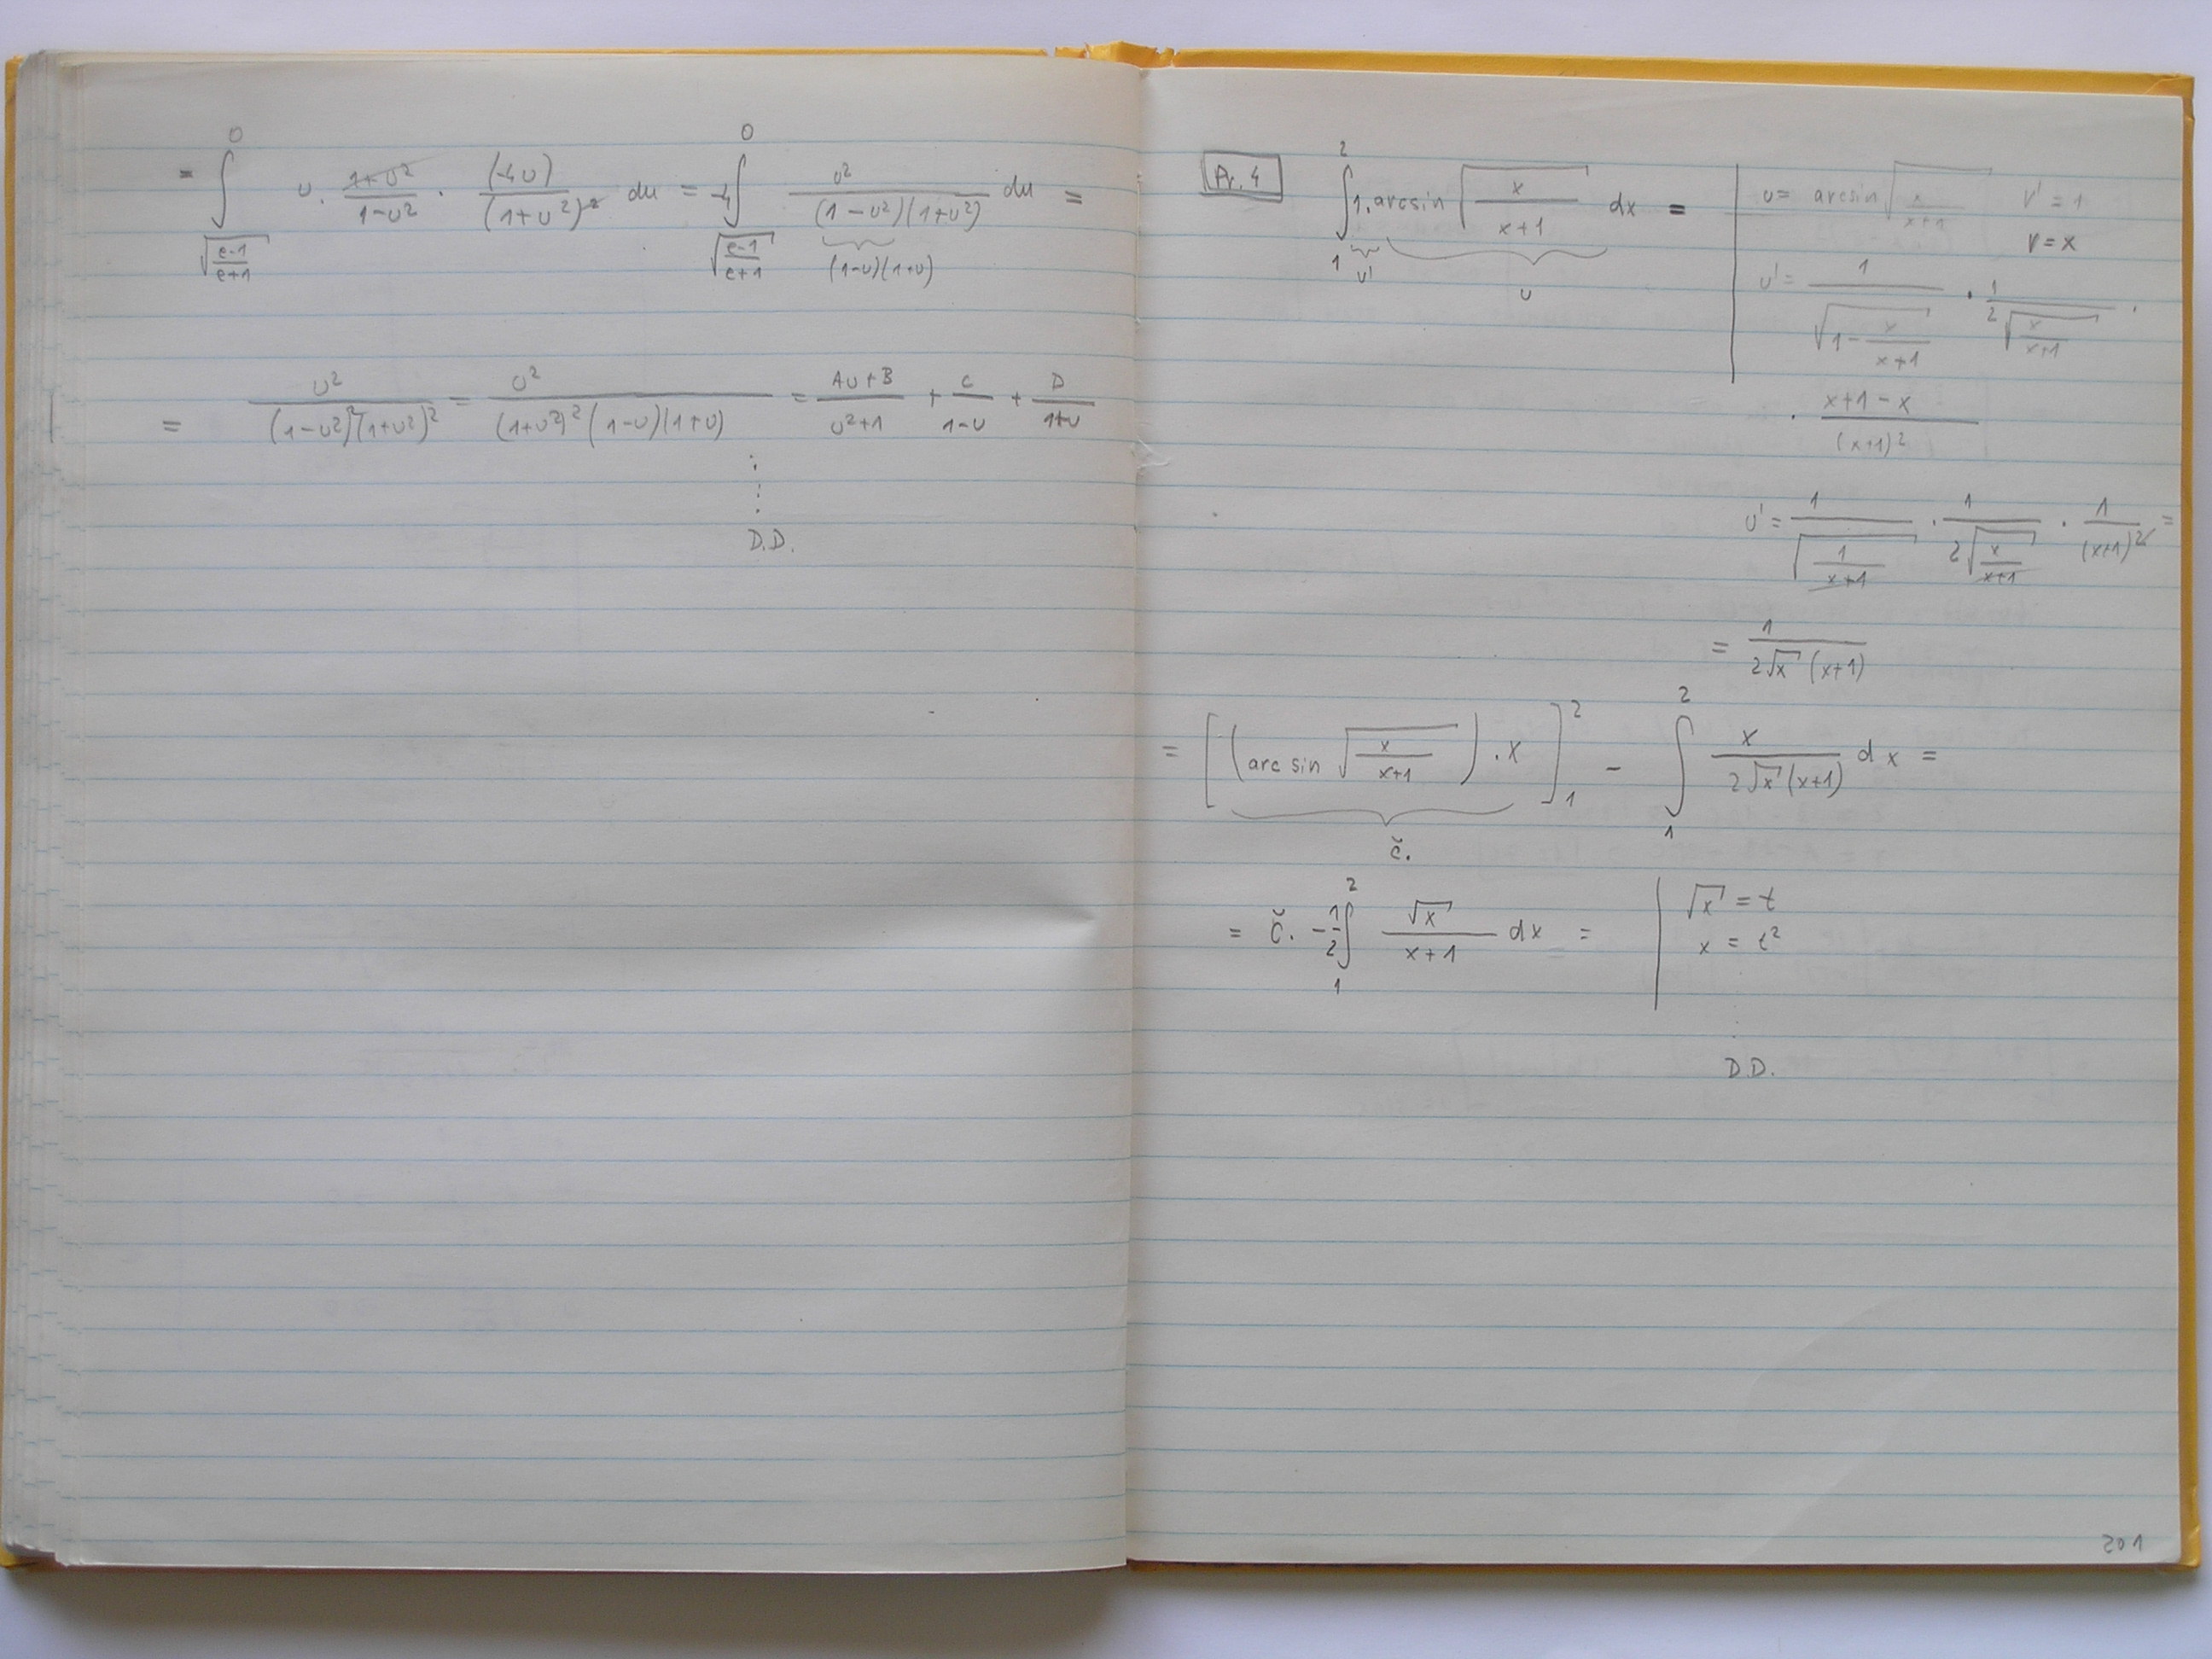 = ∫_{√((e-1)/(e+1))}^{0} u · (1+u²)/(1-u²) · (-4u)/(1+u²)² du = -4 ∫_{√((e-1)/(e+1))}^{0} u²/((1-u²)(1+u²)) du =
(1-u)(1+u)
= u²/((1-u²)²(1+u²)²) = u²/((1+u²)²(1-u)(1+u)) = (Au+B)/(u²+1) + C/(1-u) + D/(1+u)
⋮
D.D.
Pr. 4 ∫_1^2 1·arcsin √(x/(x+1)) dx = | u = arcsin √(x/(x+1)) v' = 1
v' u v = x
u' = 1/√(1 - x/(x+1)) · 1/(2√(x/(x+1))) ·
· (x+1-x)/(x+1)²
u' = 1/√(1/(x+1)) · 1/(2√(x/(x+1))) · 1/(x+1)² =
= 1/(2√x (x+1))
= [(arc sin √(x/(x+1))) · x]_1^2 - ∫_1^2 x/(2√x (x+1)) dx =
č.
= č. - 1/2 ∫_1^2 √x/(x+1) dx = | √x = t
x = t²
⋮
D.D.
201